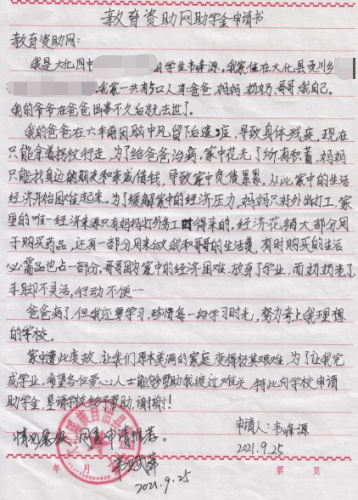 教育资助网助学金申请书
教育资助网：
我是大化四中的学生韦峰源。我家住在大化县贡川乡
我家一共有5口人，有爸爸，妈妈，奶奶，哥哥，我自己。
我的爷爷在爸爸出事不久后就去过了。
我的爸爸在六年前因脑中风留下后遗症，导致身体残疾，现在
只能拿着拐杖行走，为了给爸爸治病，家中花光了所有积蓄，妈妈
只能找身边的朋友和亲戚借钱，导致家中负债累累。从此家中的生活
经济开始困难起来。为了缓解家中的经济压力，妈妈只好外出打工，家
里的唯一经济来源只有妈妈打外劳工时得来的，经济花销大部分用
于购买药品，还有一部分用来做我和哥哥的生活费，有时购买的生活
必需品也占一部分，哥哥因家中的经济困难，放弃了学业，而奶奶老了
手脚不灵活，行动不便…
爸爸病了，但我还要学习，珍惜每一份学习时光，努力考上我理想
的学校。
家中遭此变故，让我们原本美满的家庭变得极其艰难，为了让我完
成学业，希望各位爱心人士能够帮助我渡过难关，特此向学校申请
助学金，恳请学校给予帮助，谢谢！
情况属实，同意申请推荐。
申请人：韦峰源
2021.9.25
2021.9.25
年 月
第 页